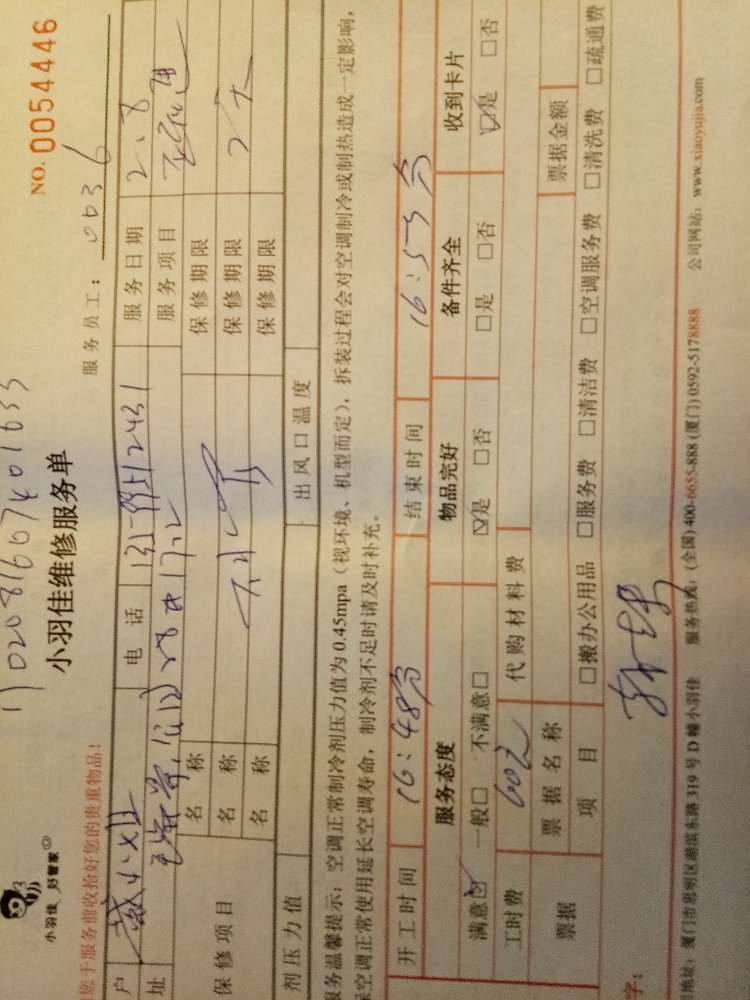 小羽佳 好管家
NO. 0054446
1702081607401633
小羽佳维修服务单
服务员工: 0036
您于服务前收拾好您的贵重物品!
户
电 话 131-99512431
服务日期 2.8
址
服务项目
保修项目
名 称
保修期限
名 称
保修期限 2天
名 称
保修期限
剂压力值
出风口温度
服务温馨提示: 空调正常制冷剂压力值为0.45mpa (视环境、机型而定), 拆装过程会对空调制冷或制热造成一定影响,
保空调正常使用延长空调寿命, 制冷剂不足时请及时补充。
开工时间 16:48分
结束时间 16:55分
服务态度
物品完好
备件齐全
收到卡片
满意☑ 一般□ 不满意□
☑是 □否
□是 □否
☑是 □否
工时费 60元
代购材料费
票据
票据名称
票据金额
项 目
□搬办公用品 □服务费 □清洁费 □空调服务费 □清洗费 □疏通费
字:
地址: 厦门市思明区湖滨东路319号D幢小羽佳 服务热线: (全国)400-6655-888 (厦门)0592-5178888 公司网站: www.xiaoyujia.com